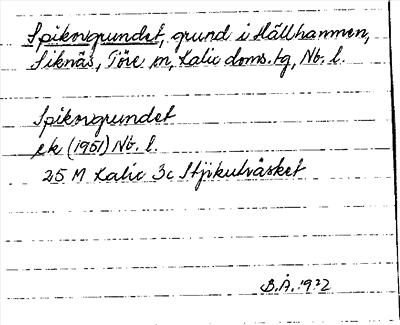 Spikovgrundet, grund i Hällhamnen,
Siknäs, Töre sn, Kalix doms.tg, Nb. l.
Spikovgrundet
ek (1951) Nb. l.
25 M Kalix 3c Stjikulvåsket
B.Å. 1922